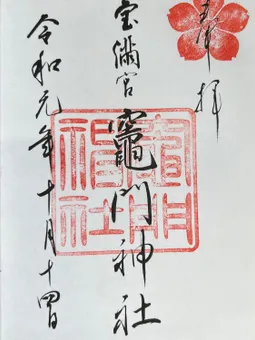 奉拝
宝満宮 竈門神社
令和元年十月十四日
竈門神社